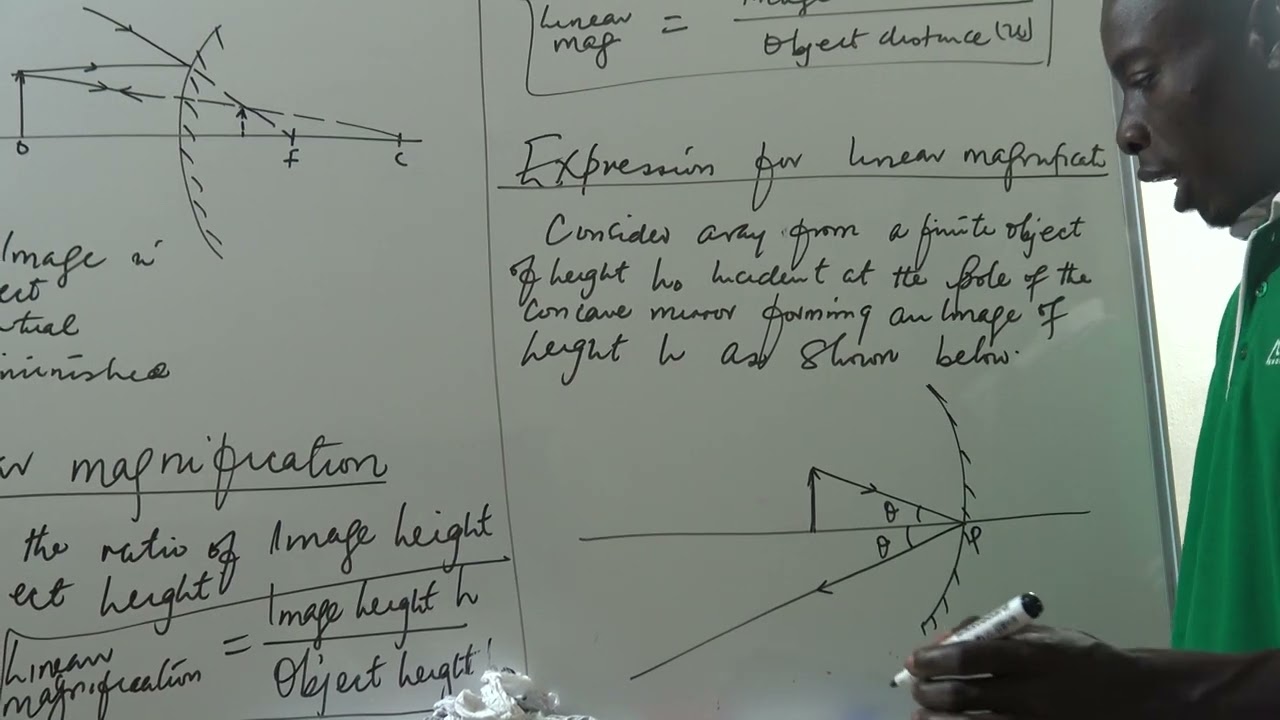 O
f
C
Image
Linear magnification
the ratio of Image height
height
Linear magnification = Image height h
Object height
Linear mag =
Object distance (u)
Expression for linear magnificat
Consider aray from a finite object
of height ho Incident at the Pole of the
Concave mirror forming an Image of
height h as shown below.
θ
θ
P